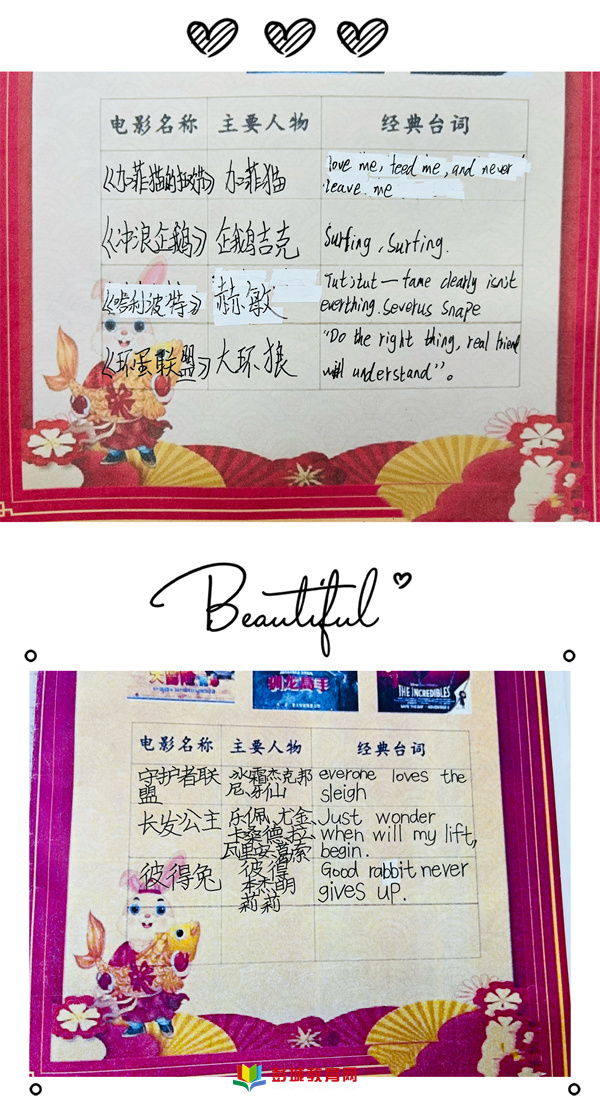 电影名称 主要人物 经典台词
《加菲猫的幸福》 加菲猫 love me, feed me, and never
leave me
《冲浪企鹅》 企鹅吉克 Surfing, Surfing.
《哈利波特》 赫敏 Tut,tut — fame clearly isn't
everthing. Severus Snape
《坏蛋联盟》 大坏狼 "Do the right thing, real friend
will understand"。
Beautiful
驯龙高手
THE INCREDIBLES
电影名称 主要人物 经典台词
守护者联盟 冰霜杰克邦
尼、牙仙 everone loves the
sleigh
长发公主 乐佩、尤金、
卡桑德拉、
瓦里安 Just wonder
when will my lift,
begin.
彼得兔 彼得
本杰明
莉莉 Good rabbit never
gives up.
彭城教育网